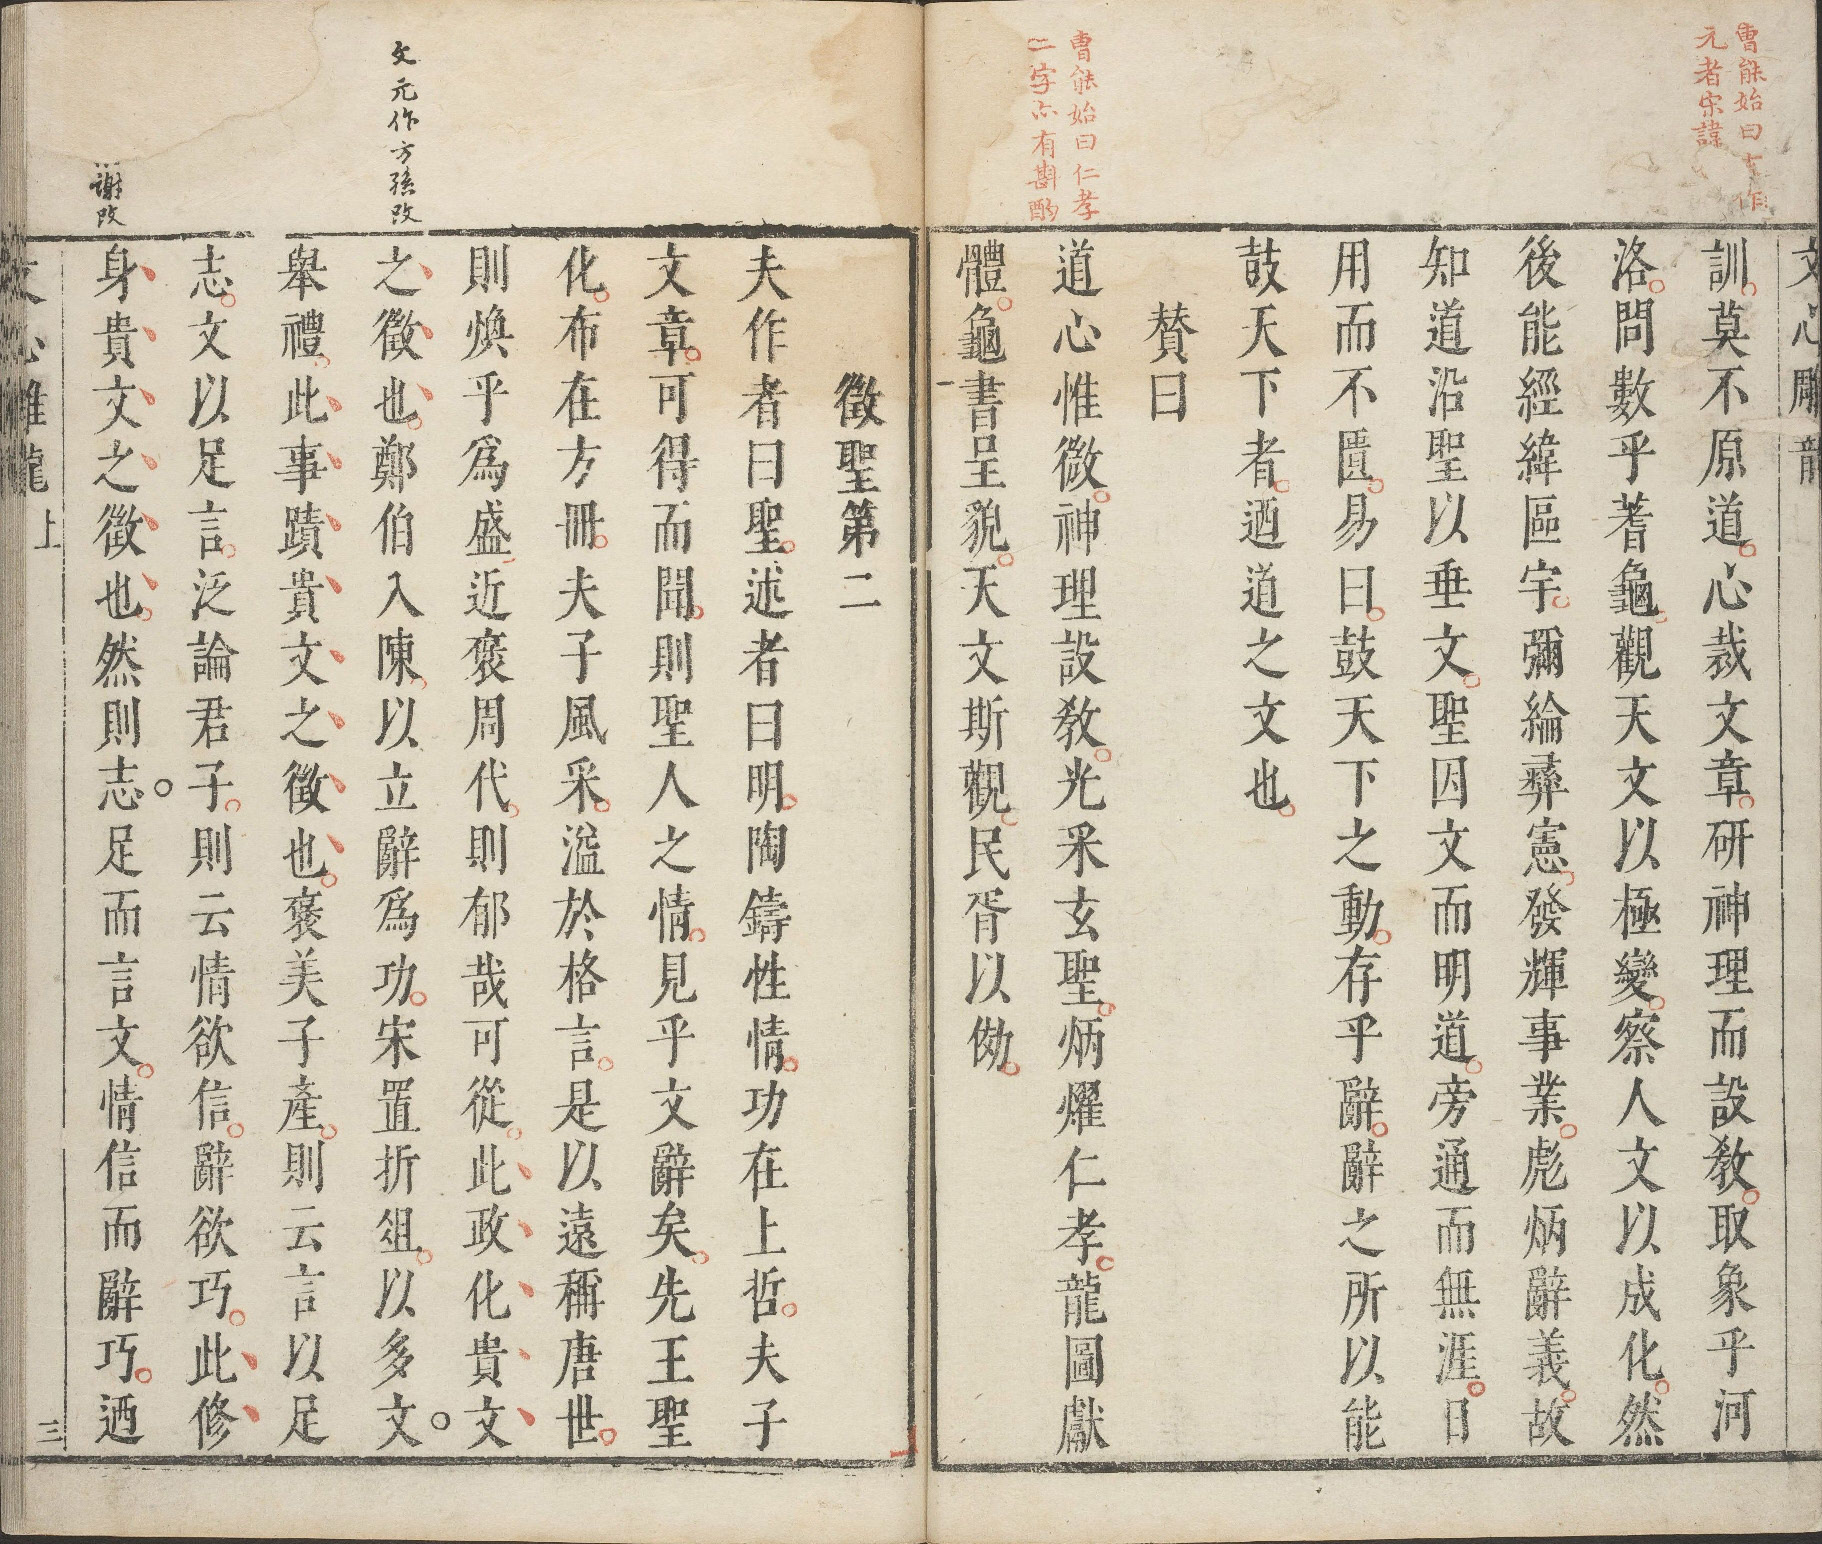 曹能始曰玄作
元者宋諱
曹能始曰仁孝
二字亦有斟酌
文心雕龍
訓莫不原道心裁文章研神理而設敎取象乎河
洛問數乎蓍龜觀天文以極變察人文以成化然
後能經緯區宇彌綸彛憲發輝事業彪炳辭義故
知道沿聖以垂文聖因文而明道旁通而無涯日
用而不匱易曰鼓天下之動存乎辭辭之所以能
鼓天下者迺道之文也
贊曰
道心惟微神理設敎光采玄聖炳燿仁孝龍圖獻
體龜書呈貌天文斯觀民胥以傚
文元作方孫改
謝改
徵聖第二
夫作者曰聖述者曰明陶鑄性情功在上哲夫子
文章可得而聞則聖人之情見乎文辭矣先王聖
化布在方冊夫子風采溢於格言是以遠稱唐世
則煥乎爲盛近褒周代則郁哉可從此政化貴文
之徵也鄭伯入陳以立辭爲功宋置折俎以多文
舉禮此事蹟貴文之徵也褒美子產則云言以足
志文以足言泛論君子則云情欲信辭欲巧此修
身貴文之徵也然則志足而言文情信而辭巧迺
文心雕龍 上 三